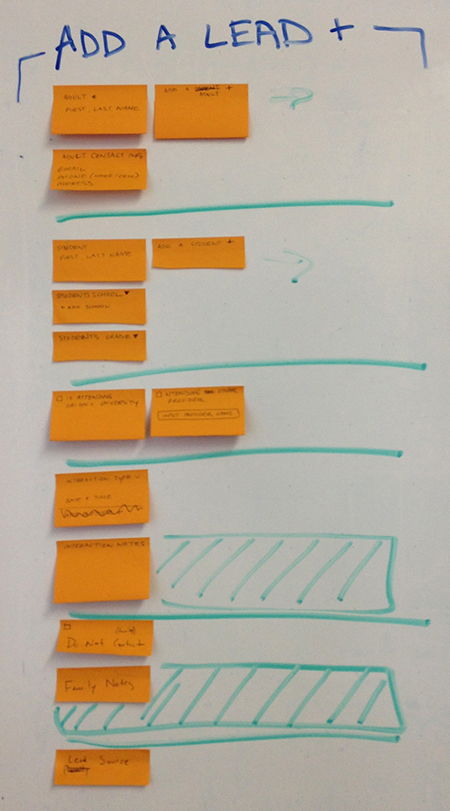 ADD A LEAD +
ADULT
FIRST, LAST NAME
ADD A + ADULT
ADULT CONTACT INFO
EMAIL
PHONE (HOME/CELL)
ADDRESS
STUDENT
FIRST, LAST NAME
ADD A STUDENT +
STUDENT'S SCHOOL
+ ADD SCHOOL
STUDENT'S GRADE
IS ATTENDING
UNIVERSITY
ATTENDING
PROVIDER
INPUT PROVIDER NAME
INTERACTION TYPE
DATE + TIME
INTERACTION NOTES
(family)
Do Not Contact
Family Notes
Lead Source